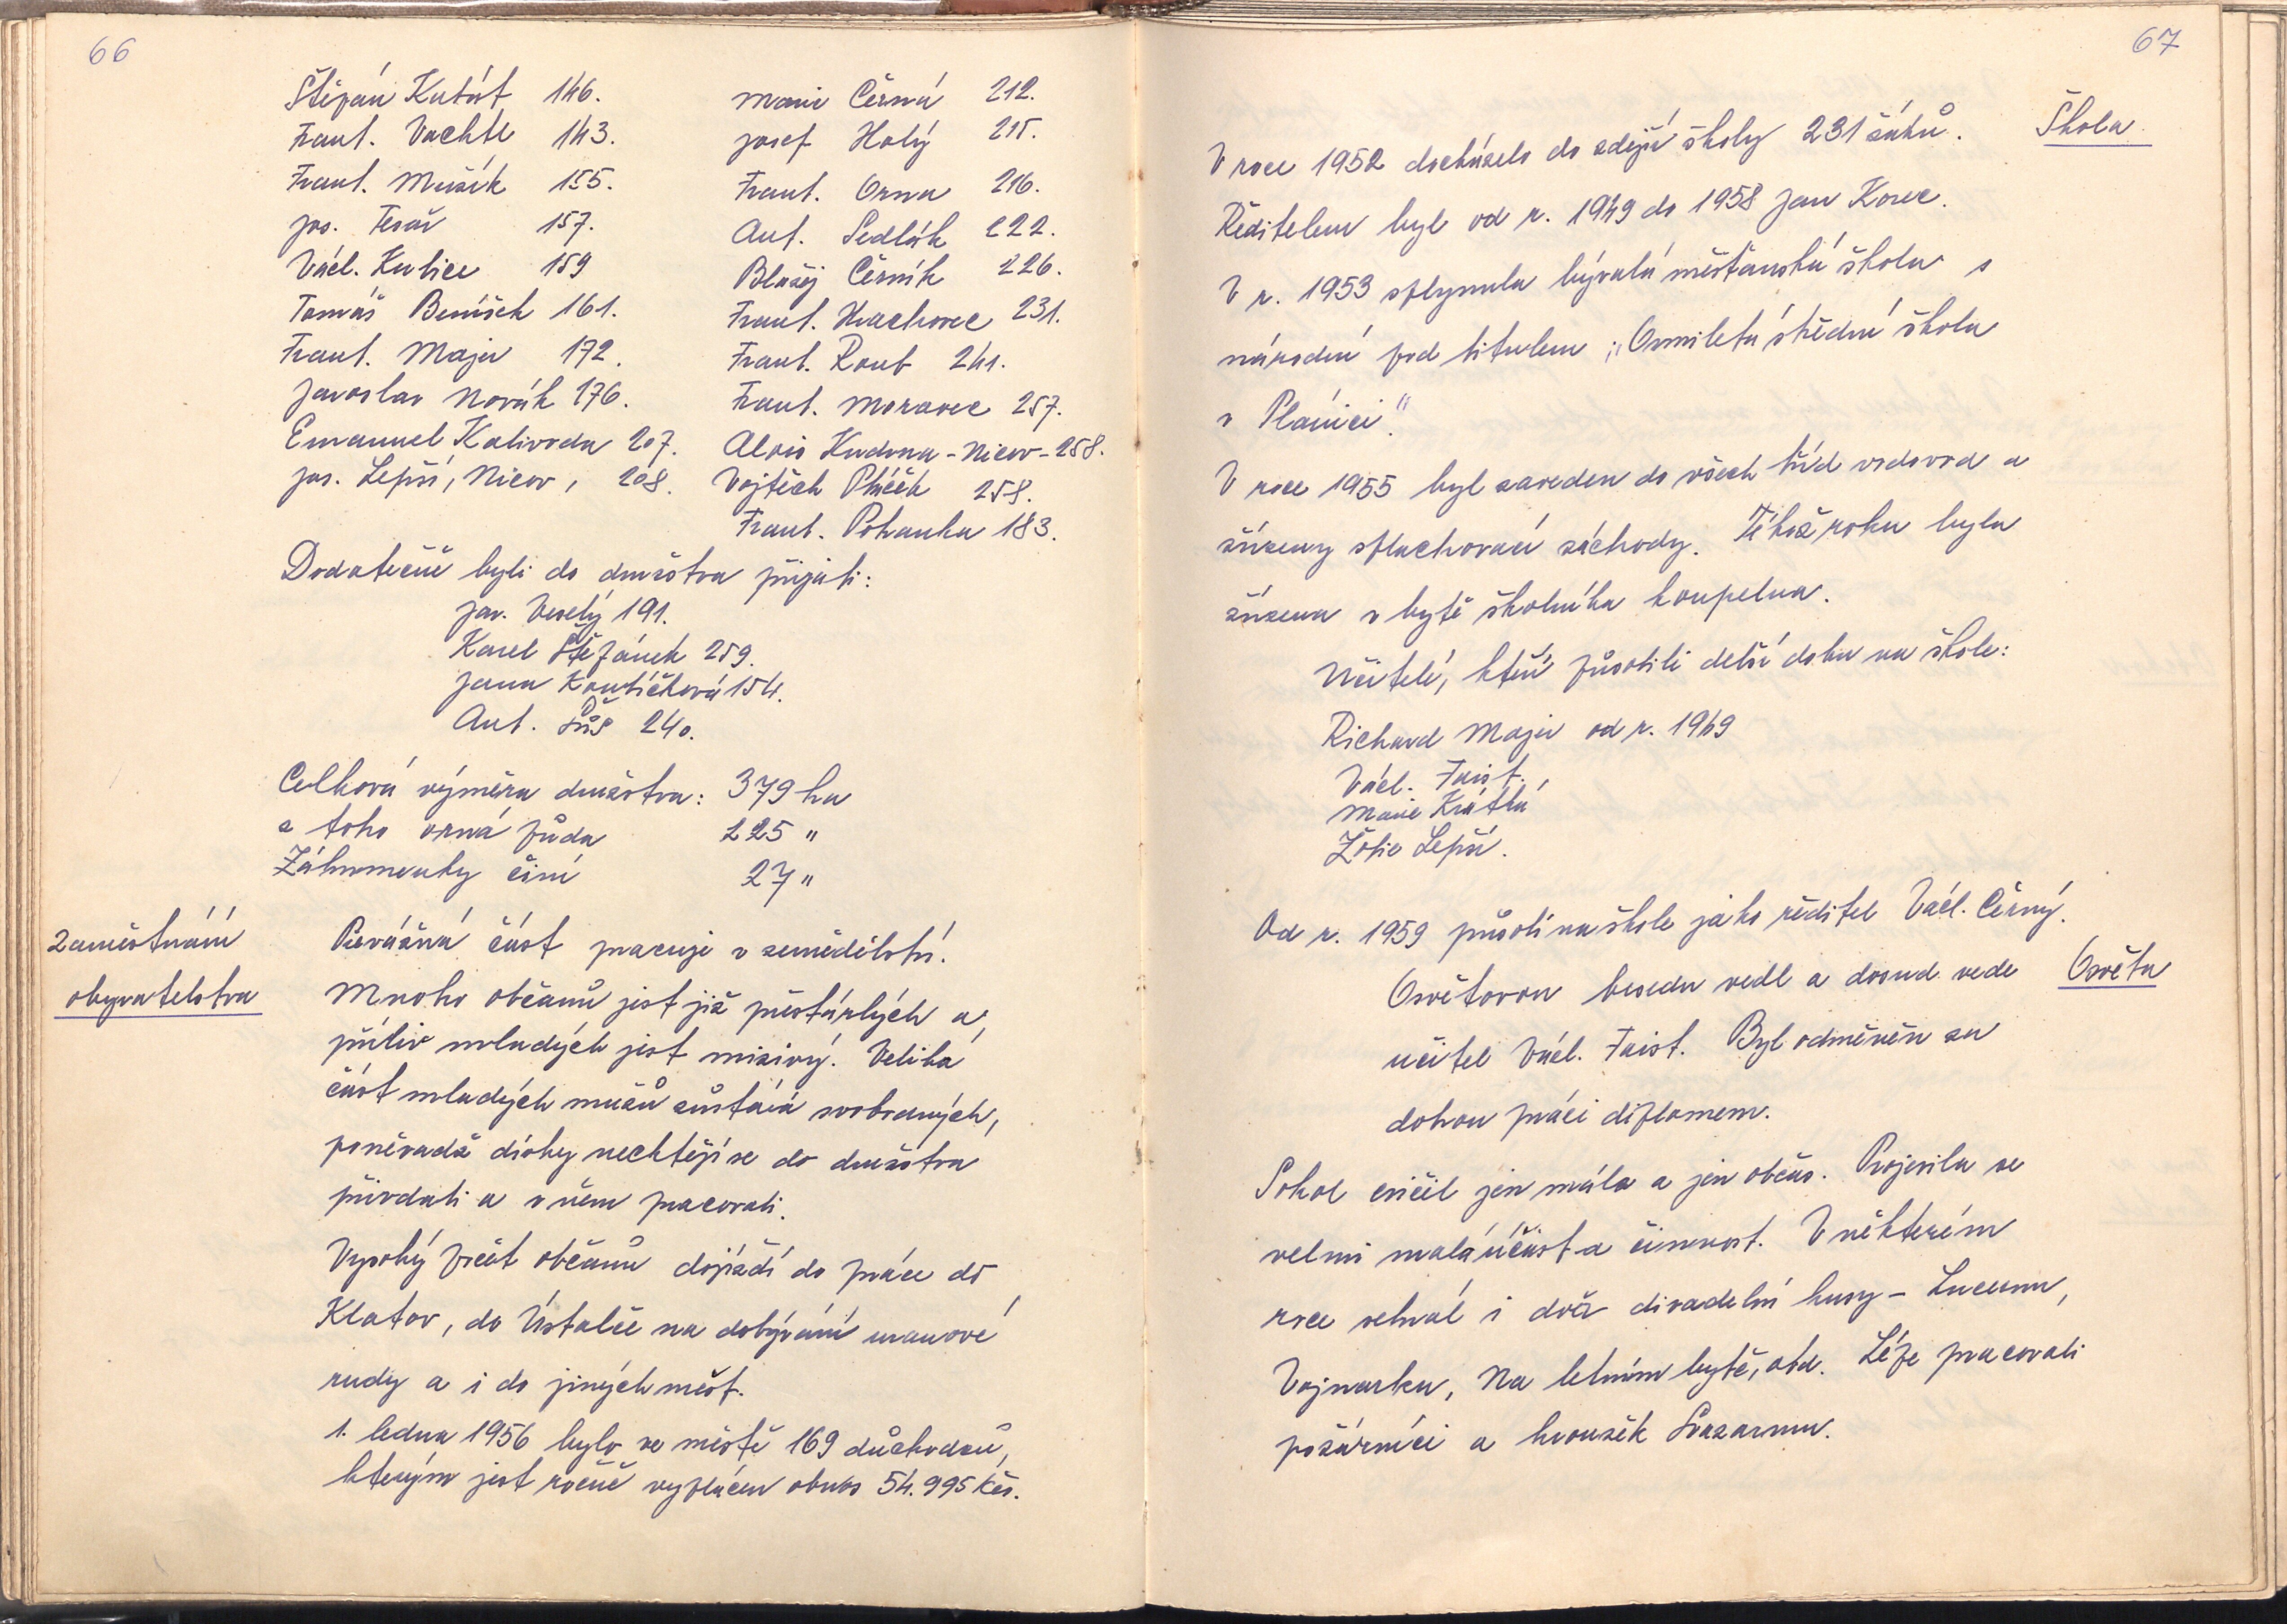 66
Štěpán Kutát 146.
Frant. Vachtl 143.
Frant. Mušík 155.
Jos. Tesař 157.
Václ. Kubice 159
Tomáš Beníšek 161.
Frant. Majer 172.
Jaroslav Novák 176.
Emanuel Kalivoda 207.
Jos. Lepší, Nicov, 208.
Marie Černá 212.
Josef Holý 215.
Frant. Orna 216.
Ant. Sedlák 222.
Blažej Černík 226.
Frant. Hrachovec 231.
Frant. Roub 241.
Frant. Moravec 257.
Alois Kudrna - Nicov - 258.
Vojtěch Ptáček 258.
Frant. Pohanka 183.
Dodatečně byli do družstva přijati:
Jar. Veselý 191.
Karel Štěpánek 259.
Jana Koutíčková 154.
Ant. Duš 240.
Celková výměra družstva: 379 ha
z toho orná půda 225 "
Záhumenky činí 27 "
Zaměstnání
obyvatelstva
Převážná část pracuje v zemědělství.
Mnoho občanů jest již přestárlých a
příliv mladých jest mizivý. Veliká
část mladých mužů zůstává svobodných,
poněvadž dívky nechtějí se do družstva
přivdati a v něm pracovati.
Vysoký počet občanů dojíždí do práce do
Klatov, do Ústaleče na dobývání uranové
rudy a i do jiných měst.
1. ledna 1956 bylo ve městě 169 důchodců,
kterým jest ročně vyplácen obnos 54.995 Kčs.
67
Škola
V roce 1952 docházelo do zdejší školy 231 žáků.
Ředitelem byl od r. 1949 do 1958 Jan Korec.
V r. 1953 splynula bývalá měšťanská škola s
národní pod titulem „Osmiletá střední škola
v Plánici".
V roce 1955 byl zaveden do všech tříd vodovod a
zřízeny splachovací záchody. Téhož roku byla
zřízena v bytě školníka koupelna.
Učitelé, kteří působili delší dobu na škole:
Richard Majer od r. 1949
Václ. Faist,
Marie Krátká
Žofie Lepší.
Od r. 1959 působí na škole jako ředitel Václ. Černý.
Osvěta
Osvětovou besedu vedl a dosud vede
učitel Václ. Faist. Byl odměněn za
dobrou práci diplomem.
Sokol cvičil jen málo a jen občas. Projevila se
velmi malá účast a činnost. V některém
roce sehrál i dva divadelní kusy - Lucernu,
Vojnarku, Na letním bytě, atd. Lépe pracovali
požárníci a kroužek Svazarmu.